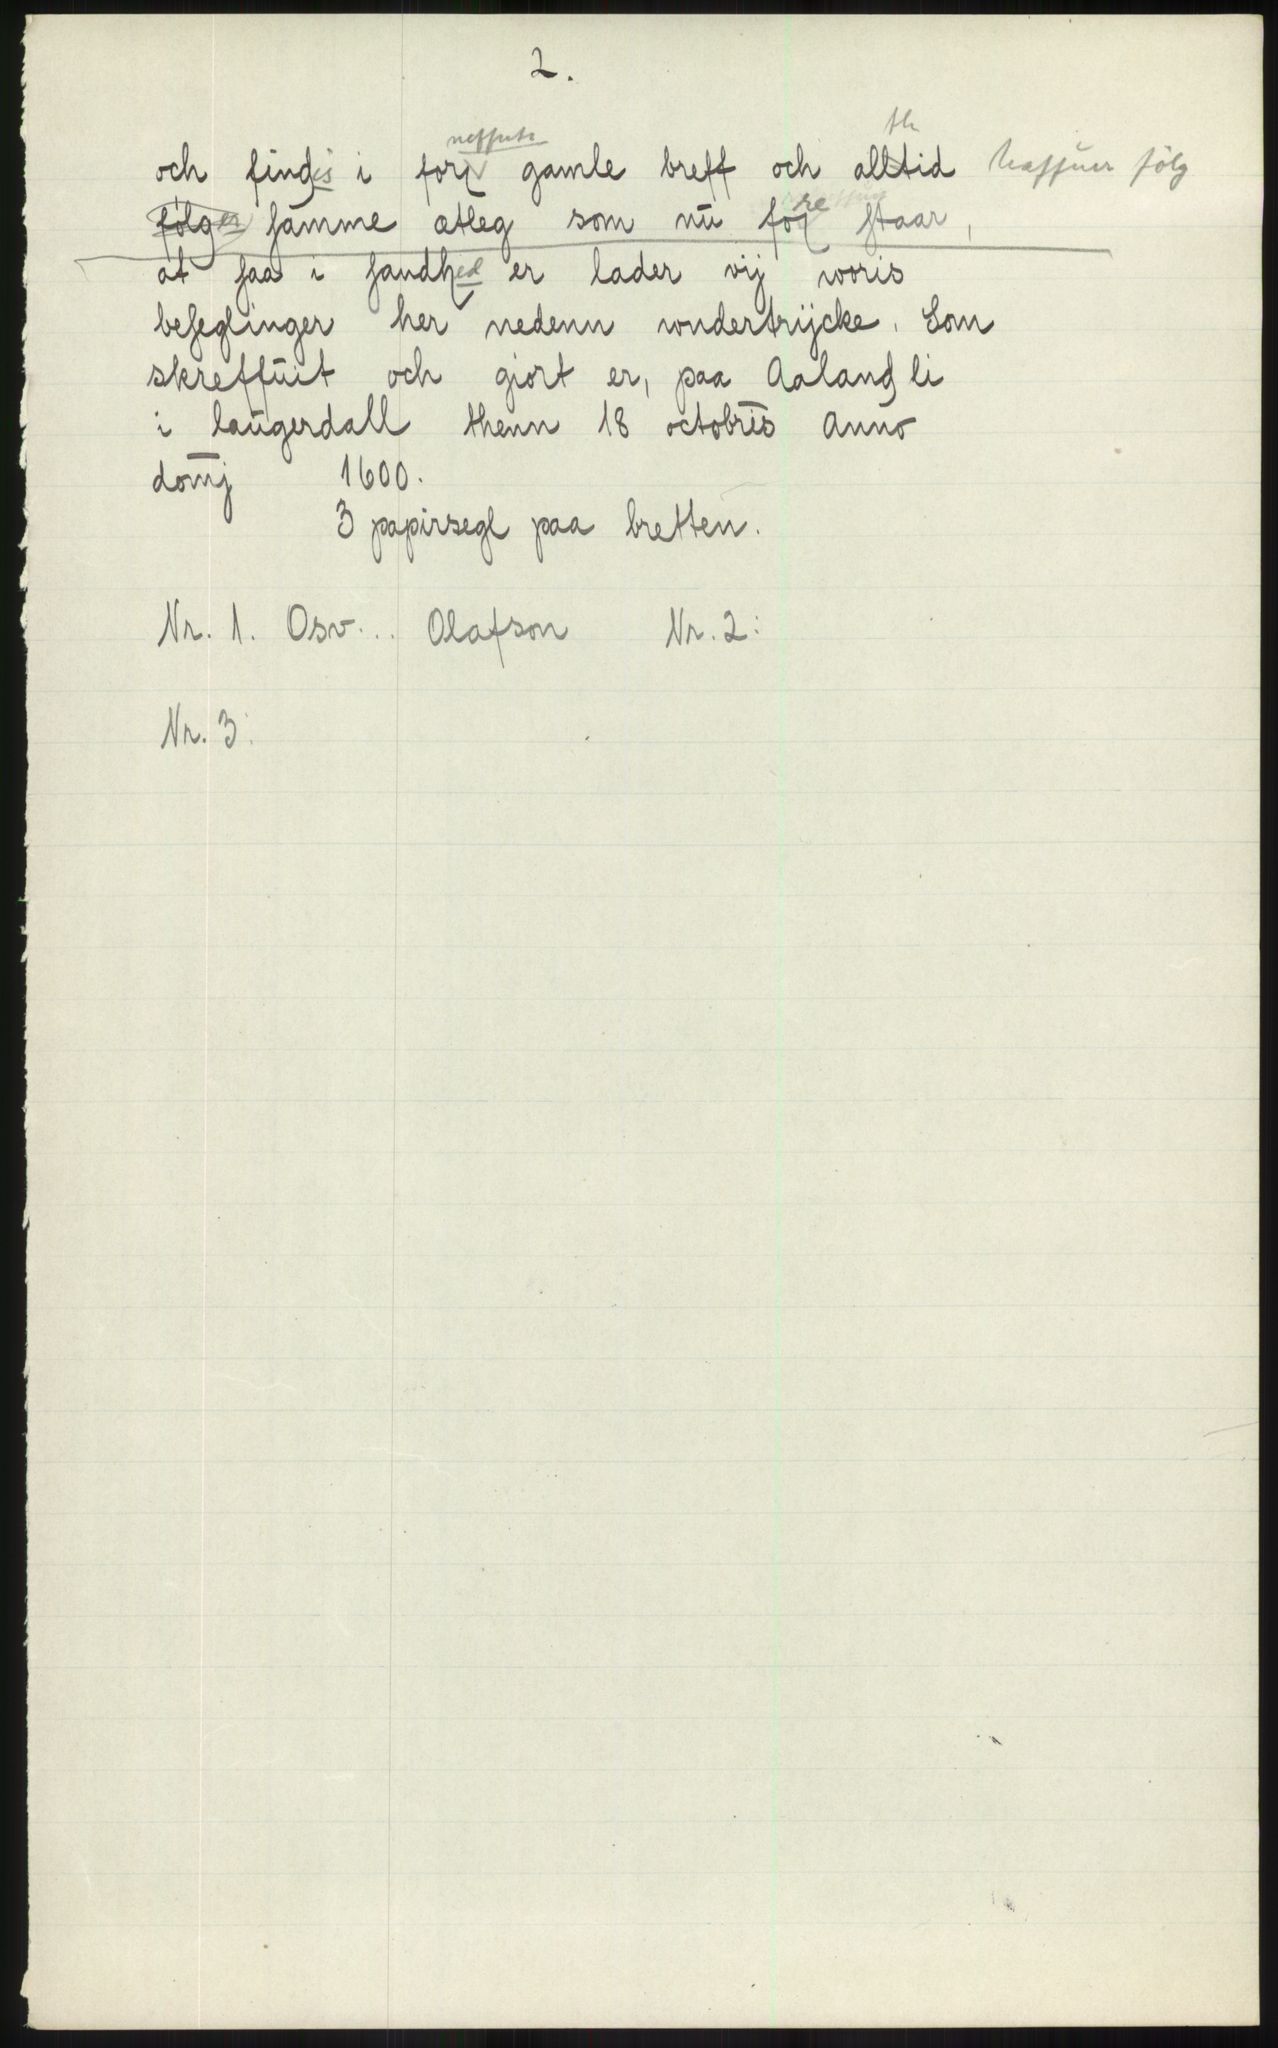 2.
neffnte th
och findis i for gamle breff och alltid haffuer följ
följer samme ætleg som nū fore staar,
at saa i sandhed er lader vij woris
beseglinger her nedenn wndertrijcke. Som
skreffūit och giort er, paa Aaland li
i laūgerdall thenn 18 octobris Anno
domj 1600.
3 papirsegl paa bretten.
Nr. 1. Osv... Olafson Nr. 2:
Nr. 3: